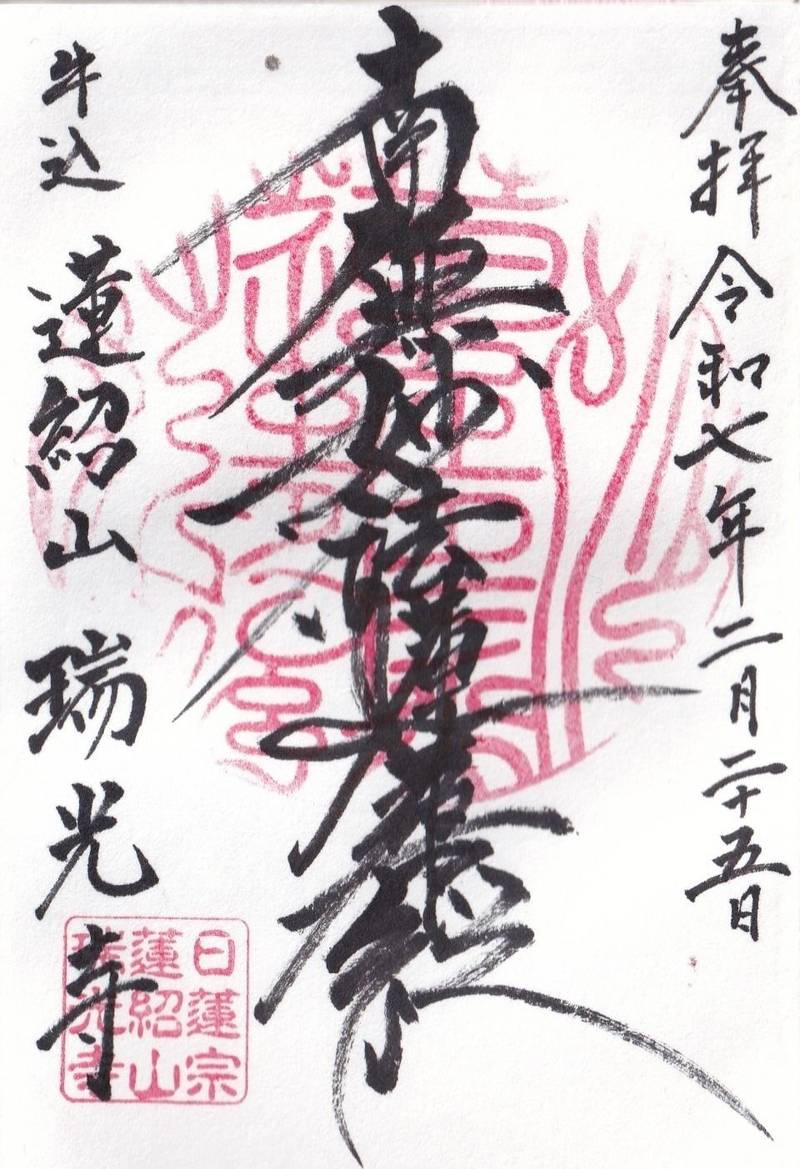 奉拝 令和七年二月二十五日
南無妙法蓮華経
牛込 蓮紹山 瑞光寺
日蓮宗
蓮紹山
瑞光寺